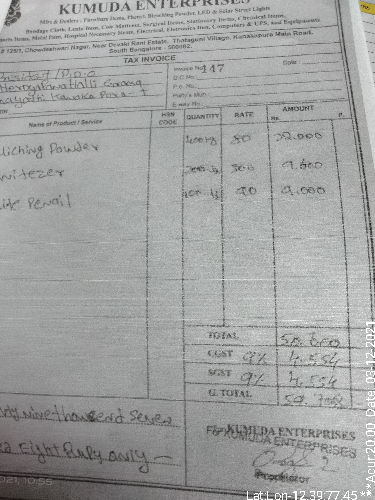 KUMUDA ENTERPRISES
Mfrs & Dealers : Furniture Items, Phenyl, Bleaching Powder, LED & Solar Street Lights
Bandage Cloth, Linen Item, Coir Mattress, Surgical Items, Stationery Items, Chemical Items,
Items, Metal Pana, Hospital Necessary Items, Electrical, Eletronics Item, Computers & UPS, and Equipments
# 128/1, Chowdeshwari Nagar, Near Devaki Rani Estate, Thataguni Village, Kanakapura Main Road,
South Bangalore - 560062.
TAX INVOICE
P.D.O
Invoice No 147
Date
D.C No.
P.o. No.
E-way No.
Name of Product / Service
HSN CODE
QUANTITY
RATE
AMOUNT
Rs.
P.
liching Powder
400kg 80 32.000
nitezer
500
9.600
Pencil
90 9.000
TOTAL 50.600
CGST 9% 4.554
SGST 9% 4.554
G. TOTAL 59.708
nine thousend seven
Eight Rudy only
For KUMUDA ENTERPRISES
KUMUDA ENTERPRISES
Proprietor
2021, 10:55
Lat Lon-12.39.77.45 **Acur 20.00 Date 03-12-2021